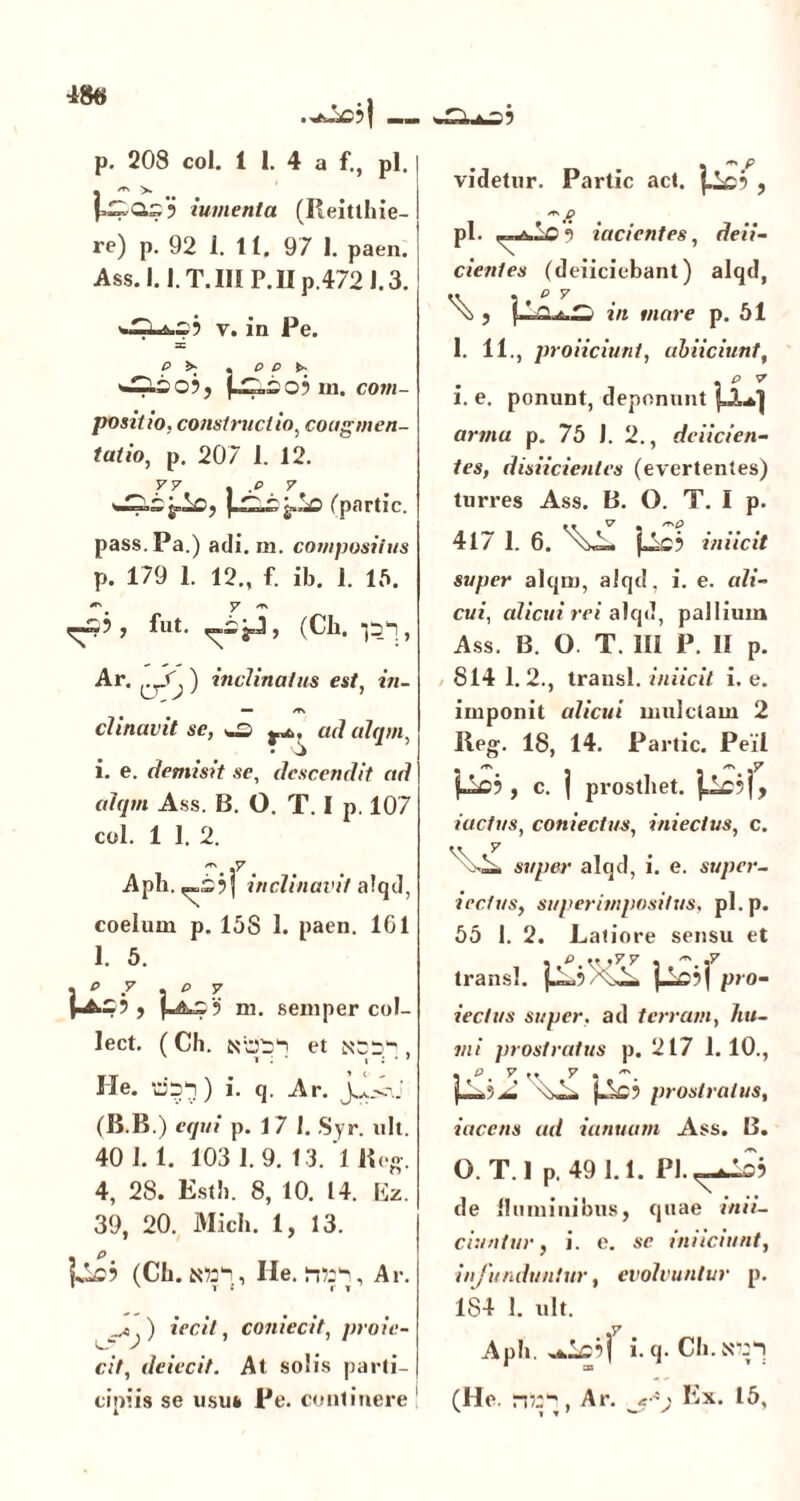 486
ܐܪܡܝ — ܪܟܝܒ
p. 208 col. 1 l. 4 a f., pl.
ܪܟܘܒܐ iumenta (Reitthie-
re) p. 92 l. 11. 97 l. paen.
Ass. l. l. T. III P. II p. 472 l. 3.
ܪܟܝܒ v. in Pe.
ܪܘܟܒ, ܪܘܟܒܐ m. com-
positio, constructio, coagmen-
tatio, p. 207 l. 12.
ܡܪܟܒ, ܡܪܟܒܐ (partic.
pass. Pa.) adi. m. compositus
p. 179 l. 12., f. ib. l. 15.
ܪܟܢ, fut. ܢܪܟܢ, (Ch. רְכַן,
Ar. رَكَنَ) inclinatus est, in-
clinavit se, ad alqm,
i. e. demisit se, descendit ad
alqm Ass. B. O. T. I p. 107
col. 1 l. 2.
Aph. ܐܪܟܢ inclinavit alqd,
coelum p. 158 l. paen. 161
l. 5.
ܪܟܫܐ, ܪܟܫܐ m. semper col-
lect. (Ch. רִכְשָׁא et רִכְסָא,
He. רֶכֶשׁ) i. q. Ar.
(B.B.) equi p. 17 l. Syr. ult.
40 l. 1. 103 l. 9. 13. 1 Reg.
4, 28. Esth. 8, 10. 14. Ez.
39, 20. Mich. 1, 13.
ܪܡܐ (Ch. רְמָא, He. רָמָה, Ar.
رمى) iecit, coniecit, proie-
cit, deiecit. At solis parti-
cipiis se usus Pe. continere
videtur. Partic act. ܪܡܐ,
pl. ܪܡܝܢ iacientes, deii-
cientes (deiiciebant) alqd,
ܒܝܡܐ in mare p. 51
l. 11., proiiciunt, abiiciunt,
i. e. ponunt, deponunt ܙܝܢܐ
arma p. 75 l. 2., deiicien-
tes, disiicientes (evertentes)
turres Ass. B. O. T. I p.
417 l. 6. ܪܡܐ ܥܠ iniicit
super alqm, alqd, i. e. ali-
cui, alicui rei alqd, pallium
Ass. B. O. T. III P. II p.
814 l. 2., transl. iniicit i. e.
imponit alicui mulctam 2
Reg. 18, 14. Partic. Peïl
ܪܡܐ, c. ܐ prosthet. ܐܪܡܐ,
iactus, coniectus, iniectus, c.
ܥܠ super alqd, i. e. super-
iectus, superimpositus, pl. p.
55 l. 2. Latiore sensu et
transl. ܐܪܡܐ ܥܠ ܐܪܥܐ pro-
iectus super, ad terram, hu-
mi prostratus p. 217 l. 10.,
ܪܡܐ ܥܠ ܬܪܥܐ prostratus,
iacens ad ianuam Ass. B.
O. T. I p. 49 l. 1. Pl. ܪܡܝܢ
de fluminibus, quae inii-
ciuntur, i. e. se iniiciunt,
infunduntur, evolvuntur p.
184 l. ult.
Aph. ܐܪܡܝ i. q. Ch. רְמָא
(He. רָמָה, Ar. رمى Ex. 15,